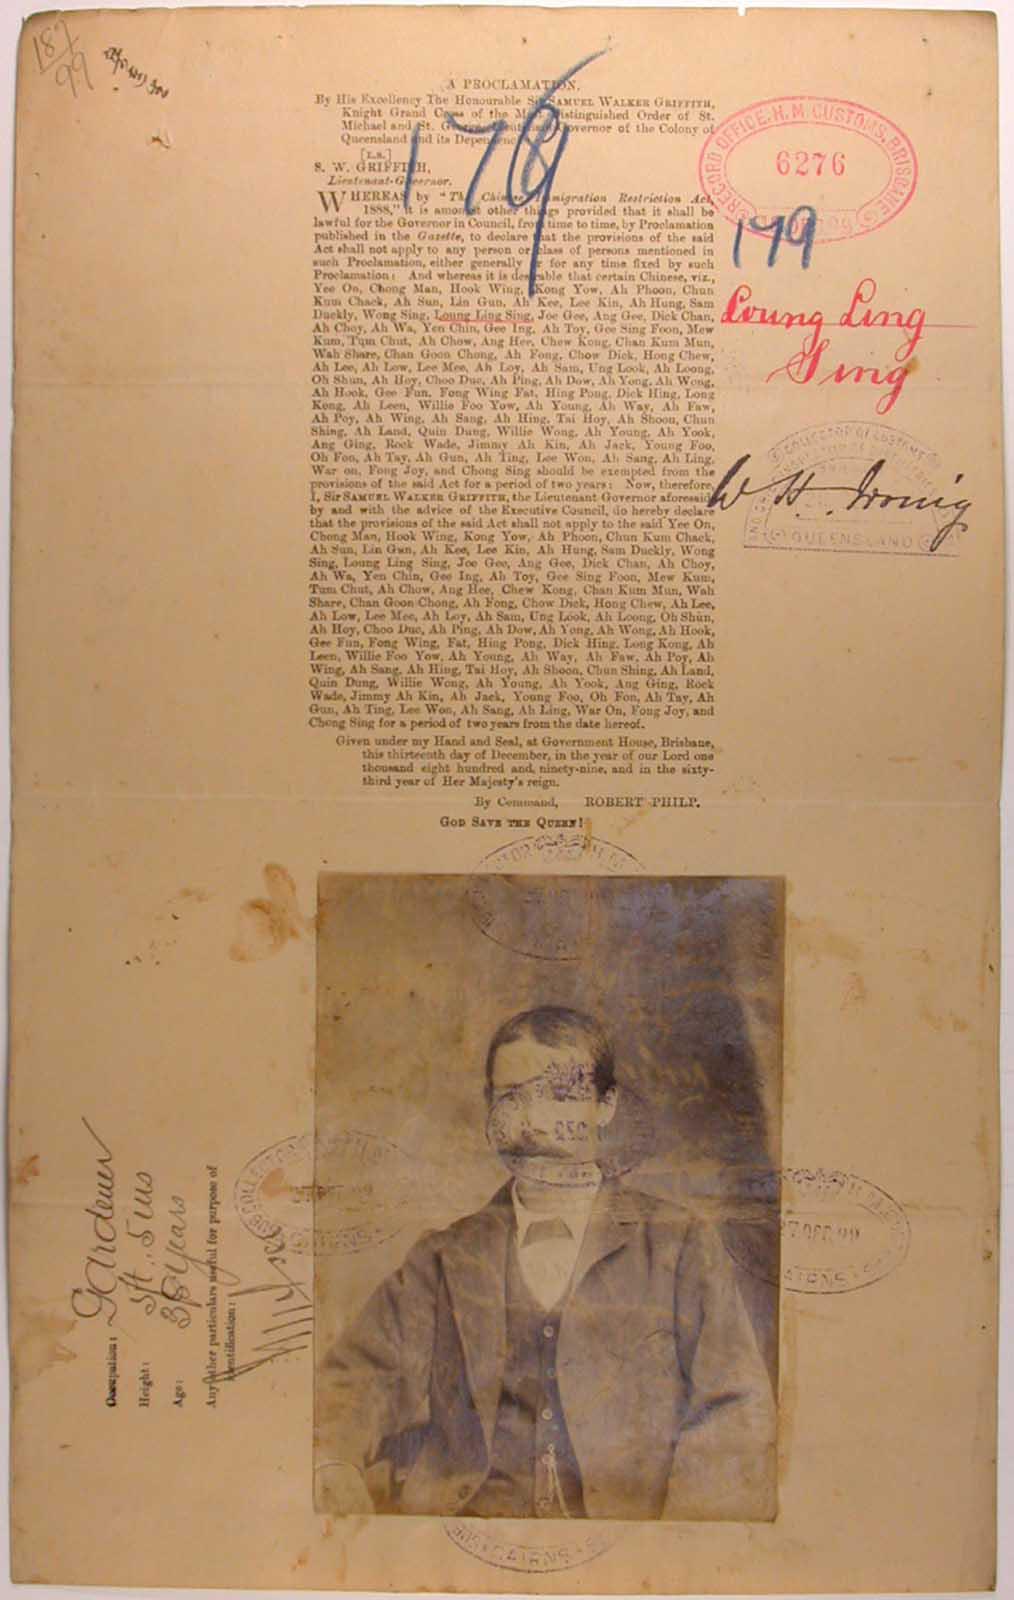 187
99
A PROCLAMATION.
By His Excellency The Honourable Sir SAMUEL WALKER GRIFFITH,
Knight Grand Cross of the Most Distinguished Order of St.
Michael and St. George, Lieutenant-Governor of the Colony of
Queensland and its Dependencies.
[L.S.]
S. W. GRIFFITH,
Lieutenant-Governor.
WHEREAS by "The Chinese Immigration Restriction Act,
1888," it is amongst other things provided that it shall be
lawful for the Governor in Council, from time to time, by Proclamation
published in the Gazette, to declare that the provisions of the said
Act shall not apply to any person or class of persons mentioned in
such Proclamation, either generally or for any time fixed by such
Proclamation: And whereas it is desirable that certain Chinese, viz.,
Yee On, Chong Man, Hook Wing, Kong Yow, Ah Phoon, Chun
Kum Chack, Ah Sun, Lin Gun, Ah Kee, Lee Kin, Ah Hung, Sam
Duckly, Wong Sing, Loung Ling Sing, Joe Gee, Ang Gee, Dick Chan,
Ah Choy, Ah Wa, Yen Chin, Gee Ing, Ah Toy, Gee Sing Foon, Mew
Kum, Tum Chut, Ah Chow, Ang Hee, Chew Kong, Chan Kum Mun,
Wah Share, Chan Goon Chong, Ah Fong, Chow Dick, Hong Chew,
Ah Lee, Ah Low, Lee Mee, Ah Loy, Ah Sam, Ung Look, Ah Loong,
Oh Shun, Ah Hoy, Choo Duc, Ah Ping, Ah Dow, Ah Yong, Ah Wong,
Ah Hook, Gee Fun, Fong Wing Fat, Hing Pong, Dick Hing, Long
Kong, Ah Leen, Willie Foo Yow, Ah Young, Ah Way, Ah Faw,
Ah Poy, Ah Wing, Ah Sang, Ah Hing, Tai Hoy, Ah Shoon, Chun
Shing, Ah Land, Quin Dung, Willie Wong, Ah Young, Ah Yook,
Ang Ging, Rock Wade, Jimmy Ah Kin, Ah Jack, Young Foo,
Oh Fon, Ah Tay, Ah Gun, Ah Ting, Lee Won, Ah Sang, Ah Ling,
War on, Fong Joy, and Chong Sing should be exempted from the
provisions of the said Act for a period of two years: Now, therefore,
I, Sir SAMUEL WALKER GRIFFITH, the Lieutenant Governor aforesaid,
by and with the advice of the Executive Council, do hereby declare
that the provisions of the said Act shall not apply to the said Yee On,
Chong Man, Hook Wing, Kong Yow, Ah Phoon, Chun Kum Chack,
Ah Sun, Lin Gun, Ah Kee, Lee Kin, Ah Hung, Sam Duckly, Wong
Sing, Loung Ling Sing, Joe Gee, Ang Gee, Dick Chan, Ah Choy,
Ah Wa, Yen Chin, Gee Ing, Ah Toy, Gee Sing Foon, Mew Kum,
Tum Chut, Ah Chow, Ang Hee, Chew Kong, Chan Kum Mun, Wah
Share, Chan Goon Chong, Ah Fong, Chow Dick, Hong Chew, Ah Lee,
Ah Low, Lee Mee, Ah Loy, Ah Sam, Ung Look, Ah Loong, Oh Shun,
Ah Hoy, Choo Duc, Ah Ping, Ah Dow, Ah Yong, Ah Wong, Ah Hook,
Gee Fun, Fong Wing, Fat, Hing Pong, Dick Hing, Long Kong, Ah
Leen, Willie Foo Yow, Ah Young, Ah Way, Ah Faw, Ah Poy, Ah
Wing, Ah Sang, Ah Hing, Tai Hoy, Ah Shoon, Chun Shing, Ah Land,
Quin Dung, Willie Wong, Ah Young, Ah Yook, Ang Ging, Rock
Wade, Jimmy Ah Kin, Ah Jack, Young Foo, Oh Fon, Ah Tay, Ah
Gun, Ah Ting, Lee Won, Ah Sang, Ah Ling, War On, Fong Joy, and
Chong Sing for a period of two years from the date hereof.
Given under my Hand and Seal, at Government House, Brisbane,
this thirteenth day of December, in the year of our Lord one
thousand eight hundred and, ninety-nine, and in the sixty-
third year of Her Majesty's reign.
By Command, ROBERT PHILP.
GOD SAVE THE QUEEN!
179
RECORD OFFICE. H. M. CUSTOMS, BRISBANE
6276
179
Loung Ling
Sing
COLLECTOR OF CUSTOMS
QUEENSLAND
W H. Irving
Occupation: Gardener
Height: 5ft. 5 ins
Age: 38 years
Any other particulars useful for purpose of
identification:
27 DEC. 99
CAIRNS
CAIRNS